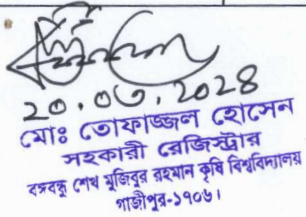 ২০.০৩.২০২৪
মোঃ তোফাজ্জল হোসেন
সহকারী রেজিস্ট্রার
বঙ্গবন্ধু শেখ মুজিবুর রহমান কৃষি বিশ্ববিদ্যালয়
গাজীপুর-১৭০৬।